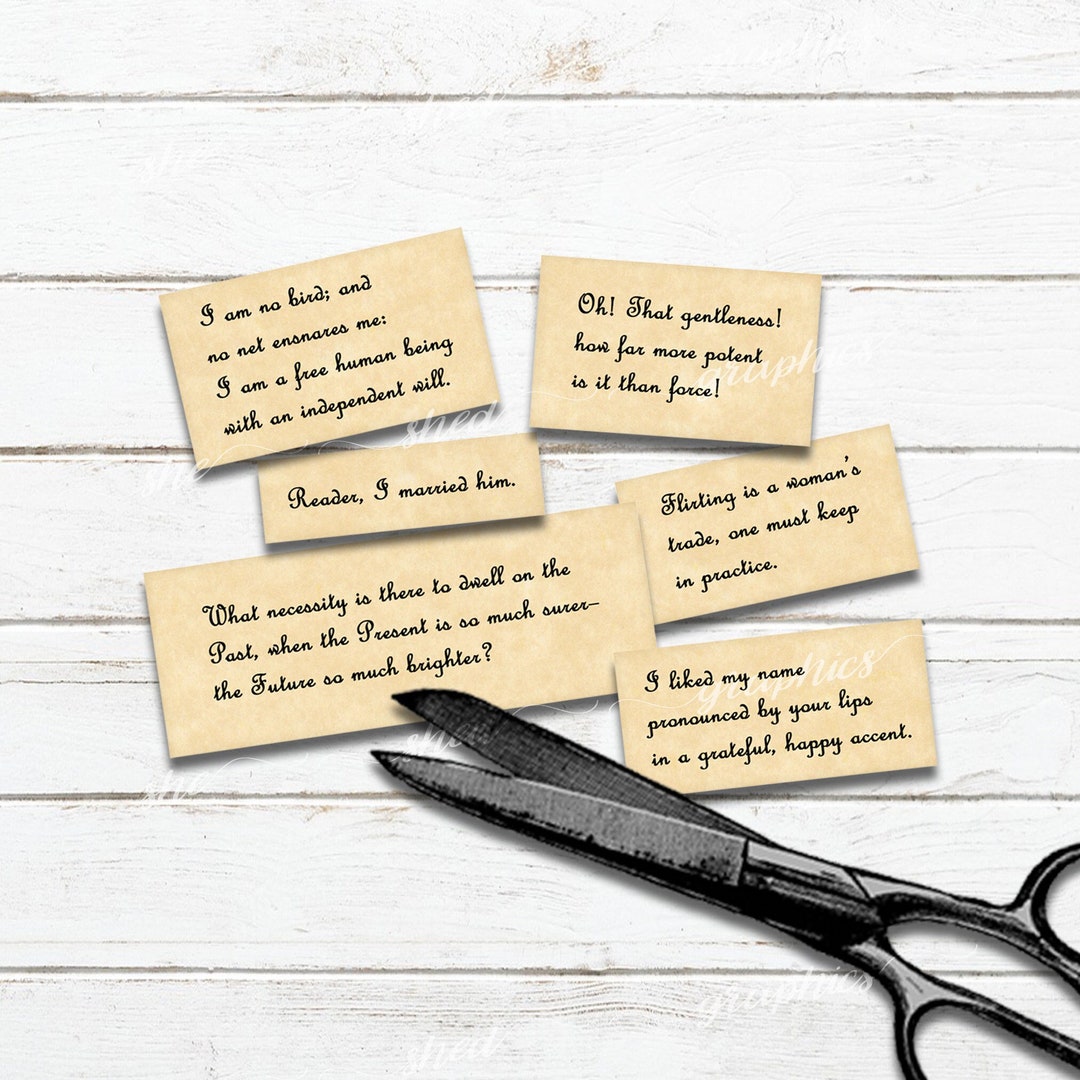 I am no bird; and
no net ensnares me:
I am a free human being
with an independent will.
Oh! That gentleness!
how far more potent
is it than force!
Reader, I married him.
Flirting is a woman's
trade, one must keep
in practice.
What necessity is there to dwell on the
Past, when the Present is so much surer–
the Future so much brighter?
I liked my name
pronounced by your lips
in a grateful, happy accent.
she shed graphics